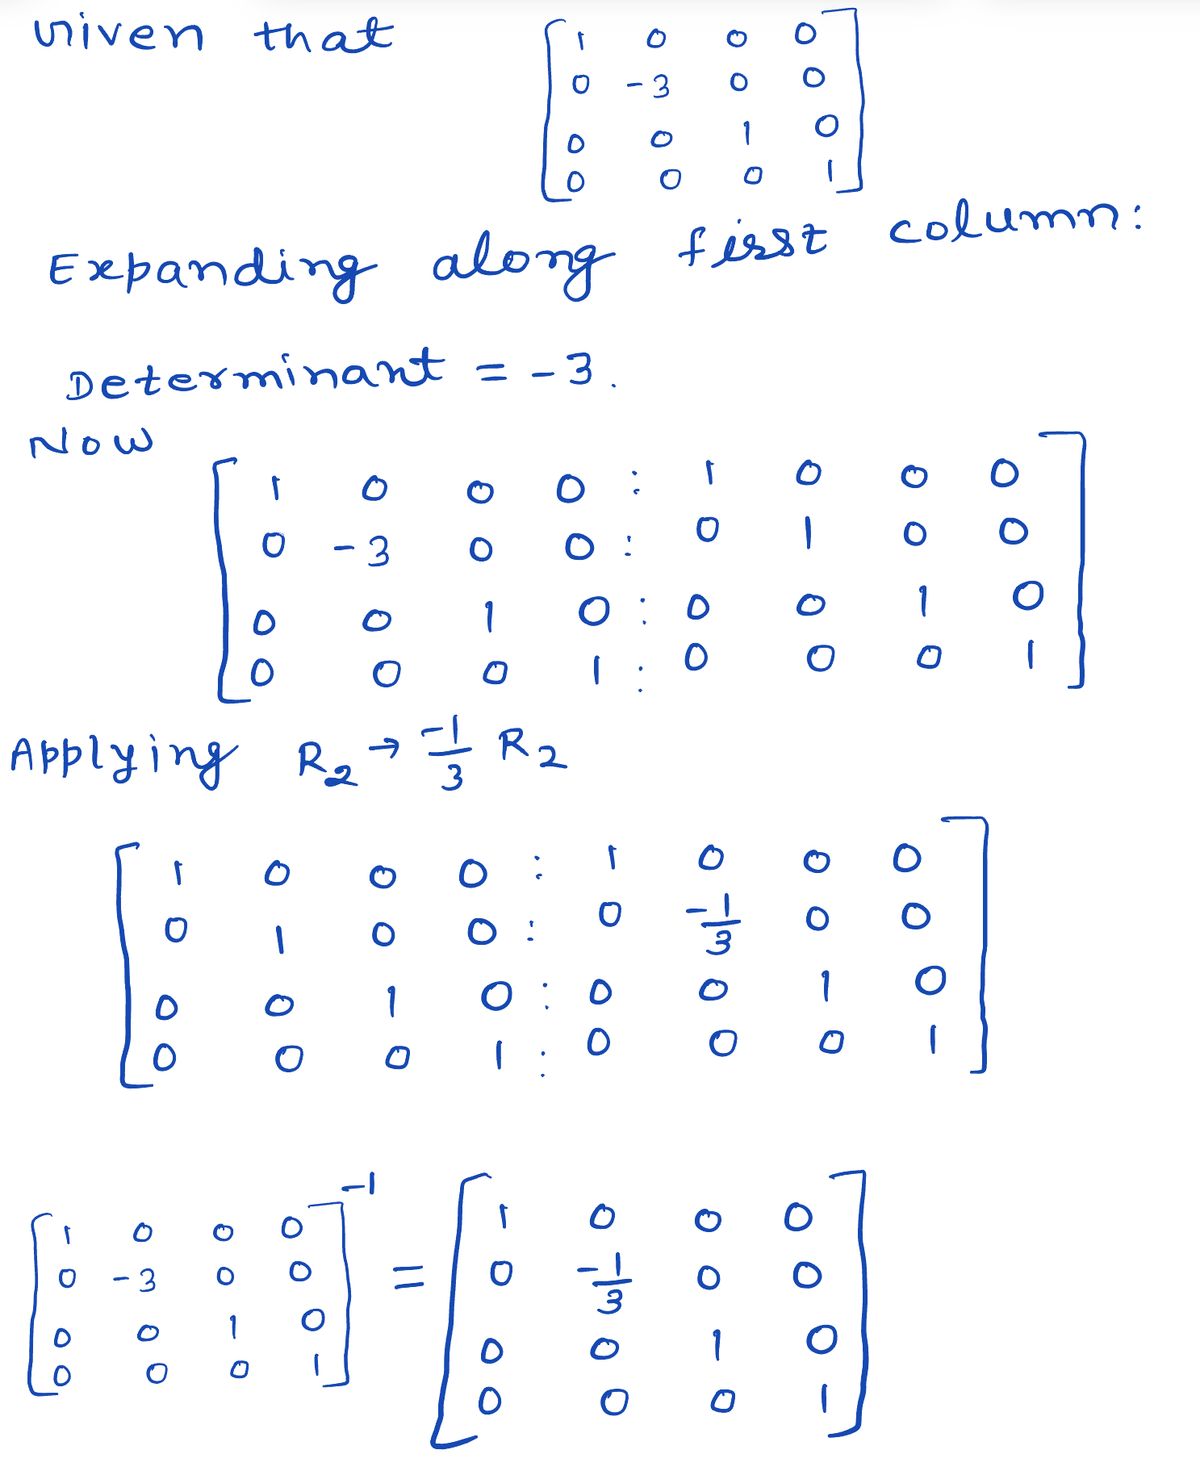 Given that [ 1 0 0 0
0 -3 0 0
0 0 1 0
0 0 0 1 ]
Expanding along first column:
Determinant = -3.
Now
[ 1 0 0 0 : 1 0 0 0
0 -3 0 0 : 0 1 0 0
0 0 1 0 : 0 0 1 0
0 0 0 1 : 0 0 0 1 ]
Applying R₂ → -1/3 R₂
[ 1 0 0 0 : 1 0 0 0
0 1 0 0 : 0 -1/3 0 0
0 0 1 0 : 0 0 1 0
0 0 0 1 : 0 0 0 1 ]
[ 1 0 0 0 ]⁻¹ [ 1 0 0 0
0 -3 0 0 = 0 -1/3 0 0
0 0 1 0 0 0 1 0
0 0 0 1 0 0 0 1 ]